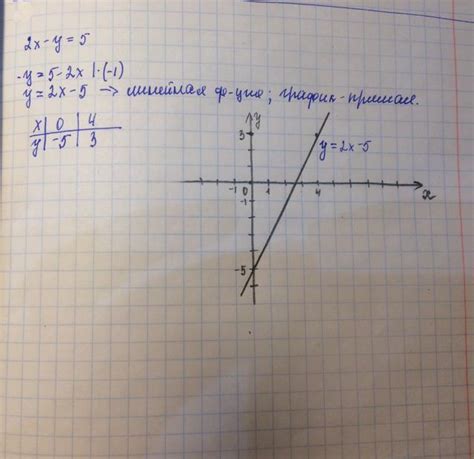 2x-y=5
-y=5-2x |·(-1)
y=2x-5 → линейная ф-ция; график-прямая.
x | 0 | 4
y | -5 | 3
y
3
y=2x-5
-1 0 1 4 x
-1
-5